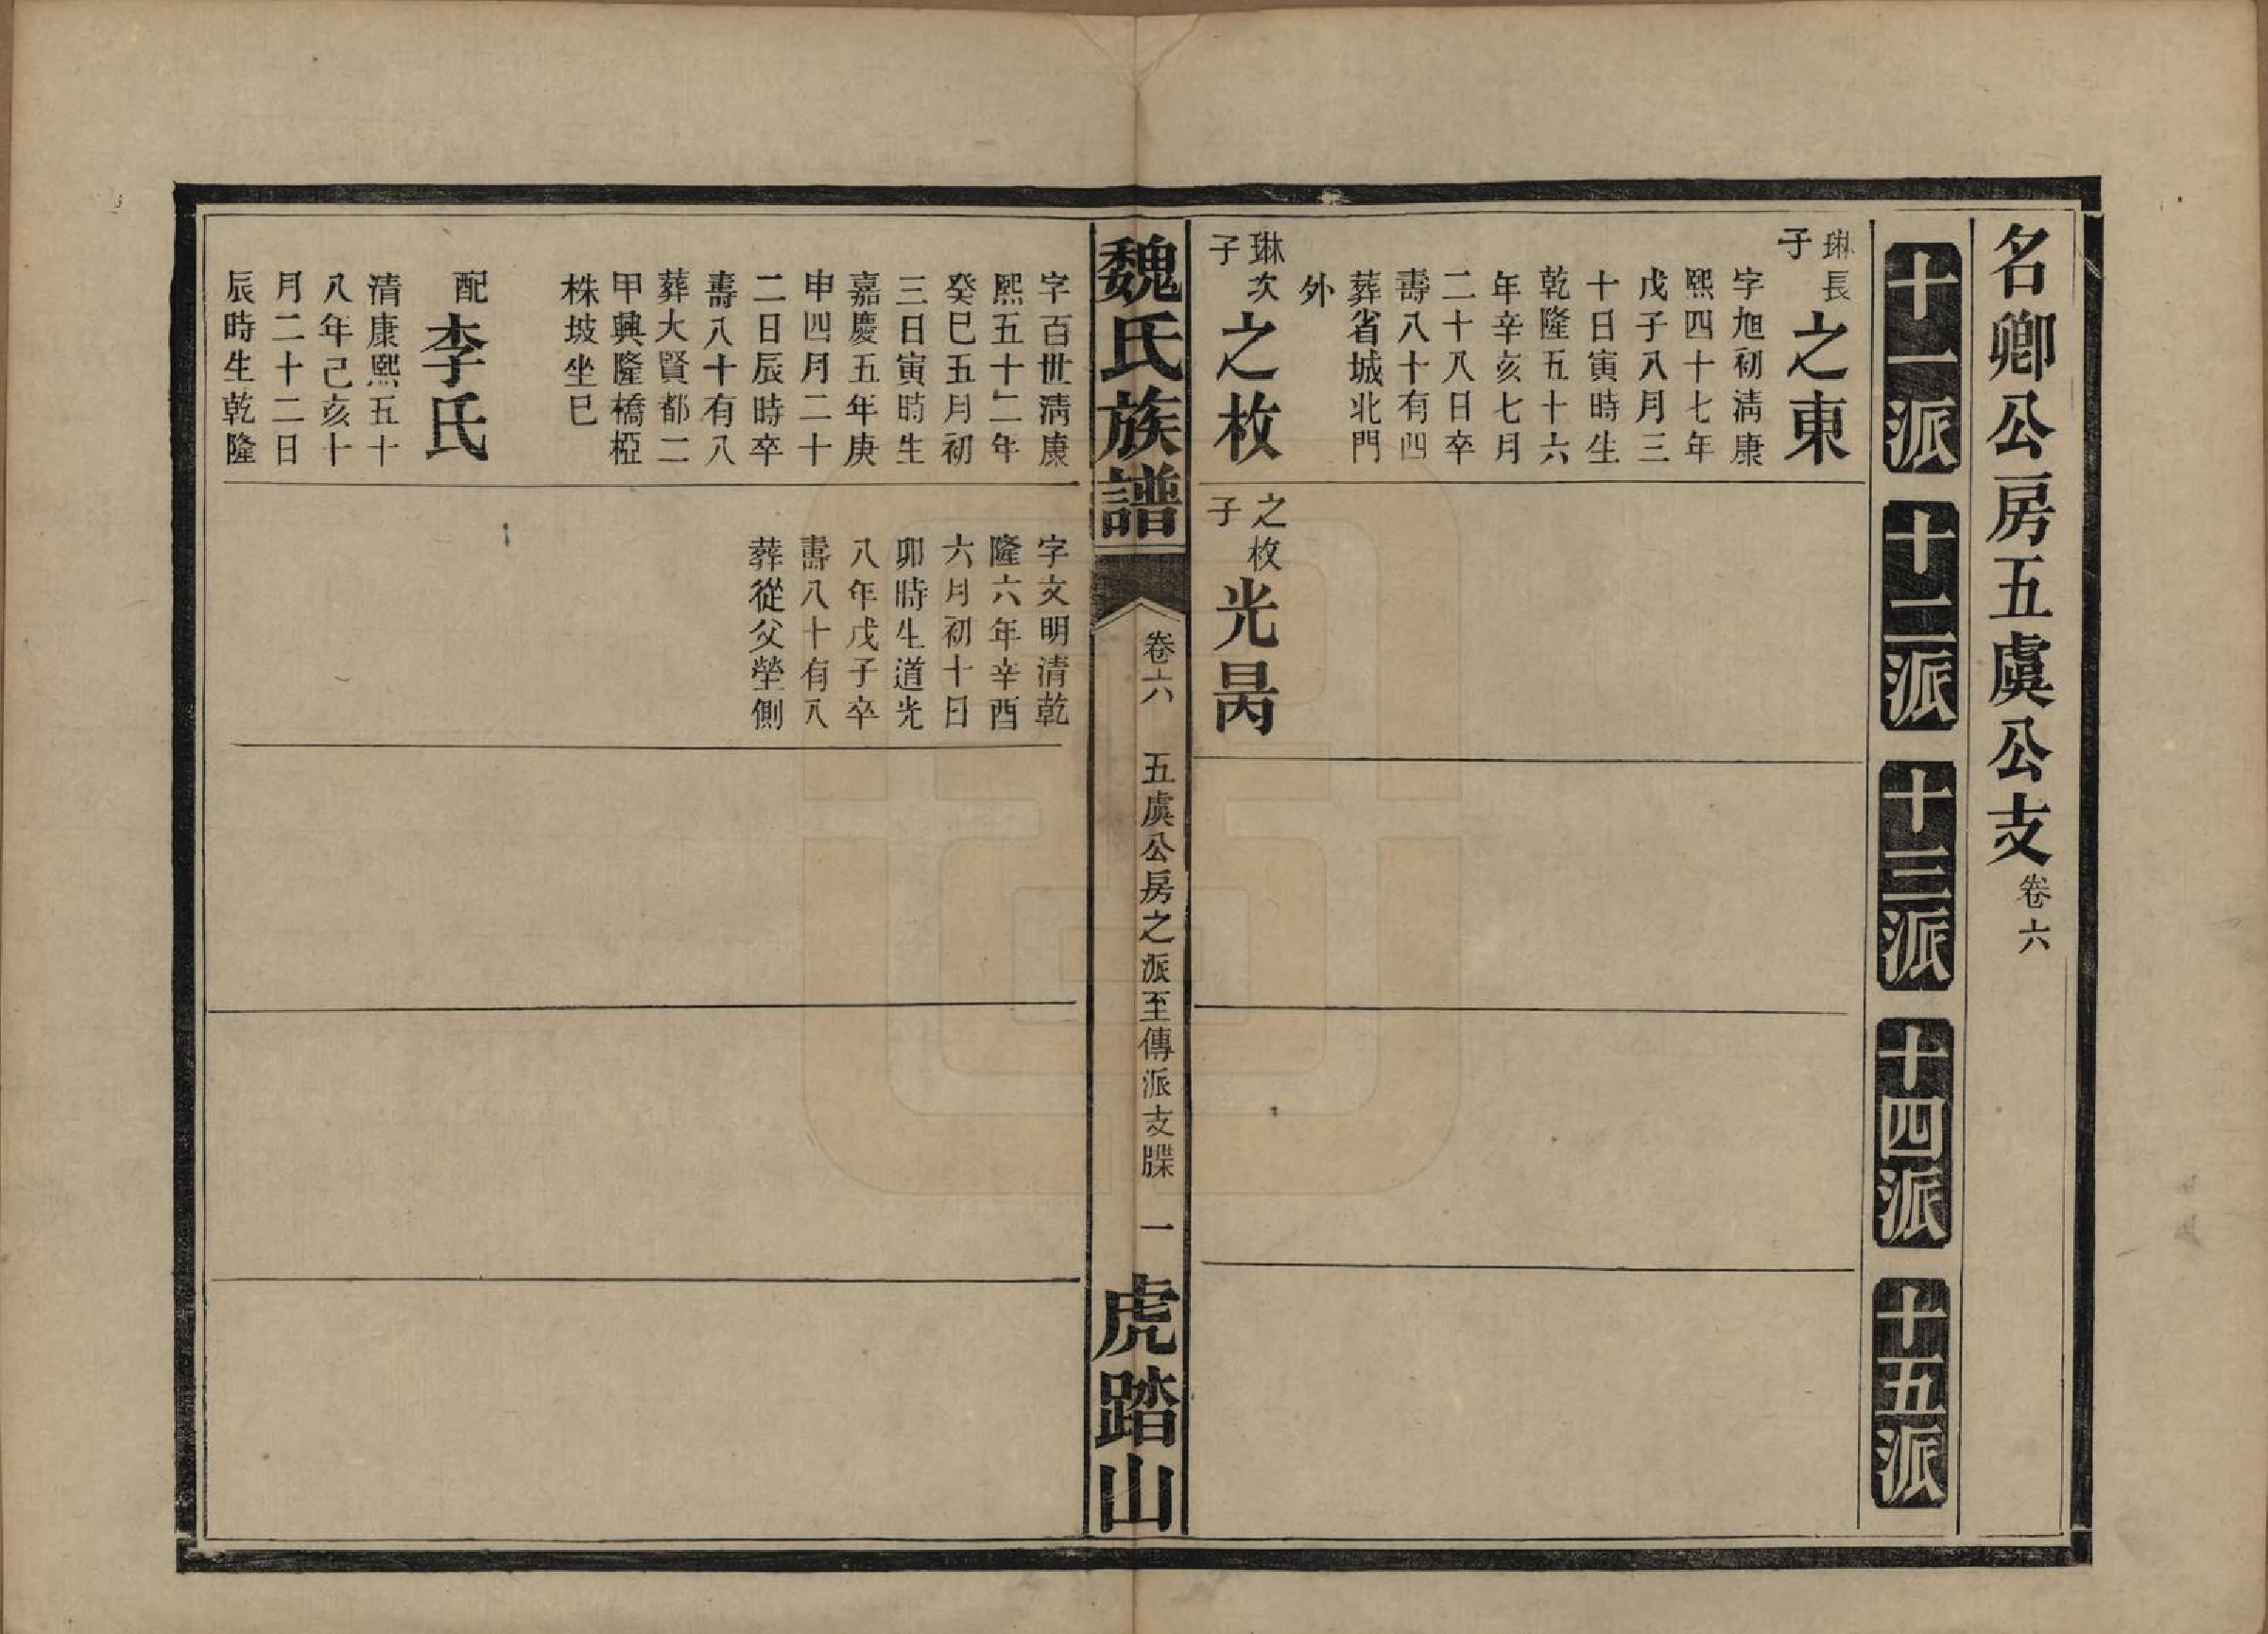 名卿公房五虞公支卷六
十一派
十二派
十三派
十四派
十五派
琳長
子
之東
字旭初清康
熙四十七年
戊子八月三
十日寅時生
乾隆五十六
年辛亥七月
二十八日卒
壽八十有四
葬省城北門
外
琳次
子
之枚
之枚
子
光昺
魏氏族譜
卷六
五虞公房之派至傳派支牒
一
虎踏山
字百世清康
熙五十二年
癸巳五月初
三日寅時生
嘉慶五年庚
申四月二十
二日辰時卒
壽八十有八
葬大賢都二
甲興隆橋椏
株坡坐巳
配李氏
清康熙五十
八年己亥十
月二十二日
辰時生乾隆
字文明清乾
隆六年辛酉
六月初十日
卯時生道光
八年戊子卒
壽八十有八
葬從父塋側